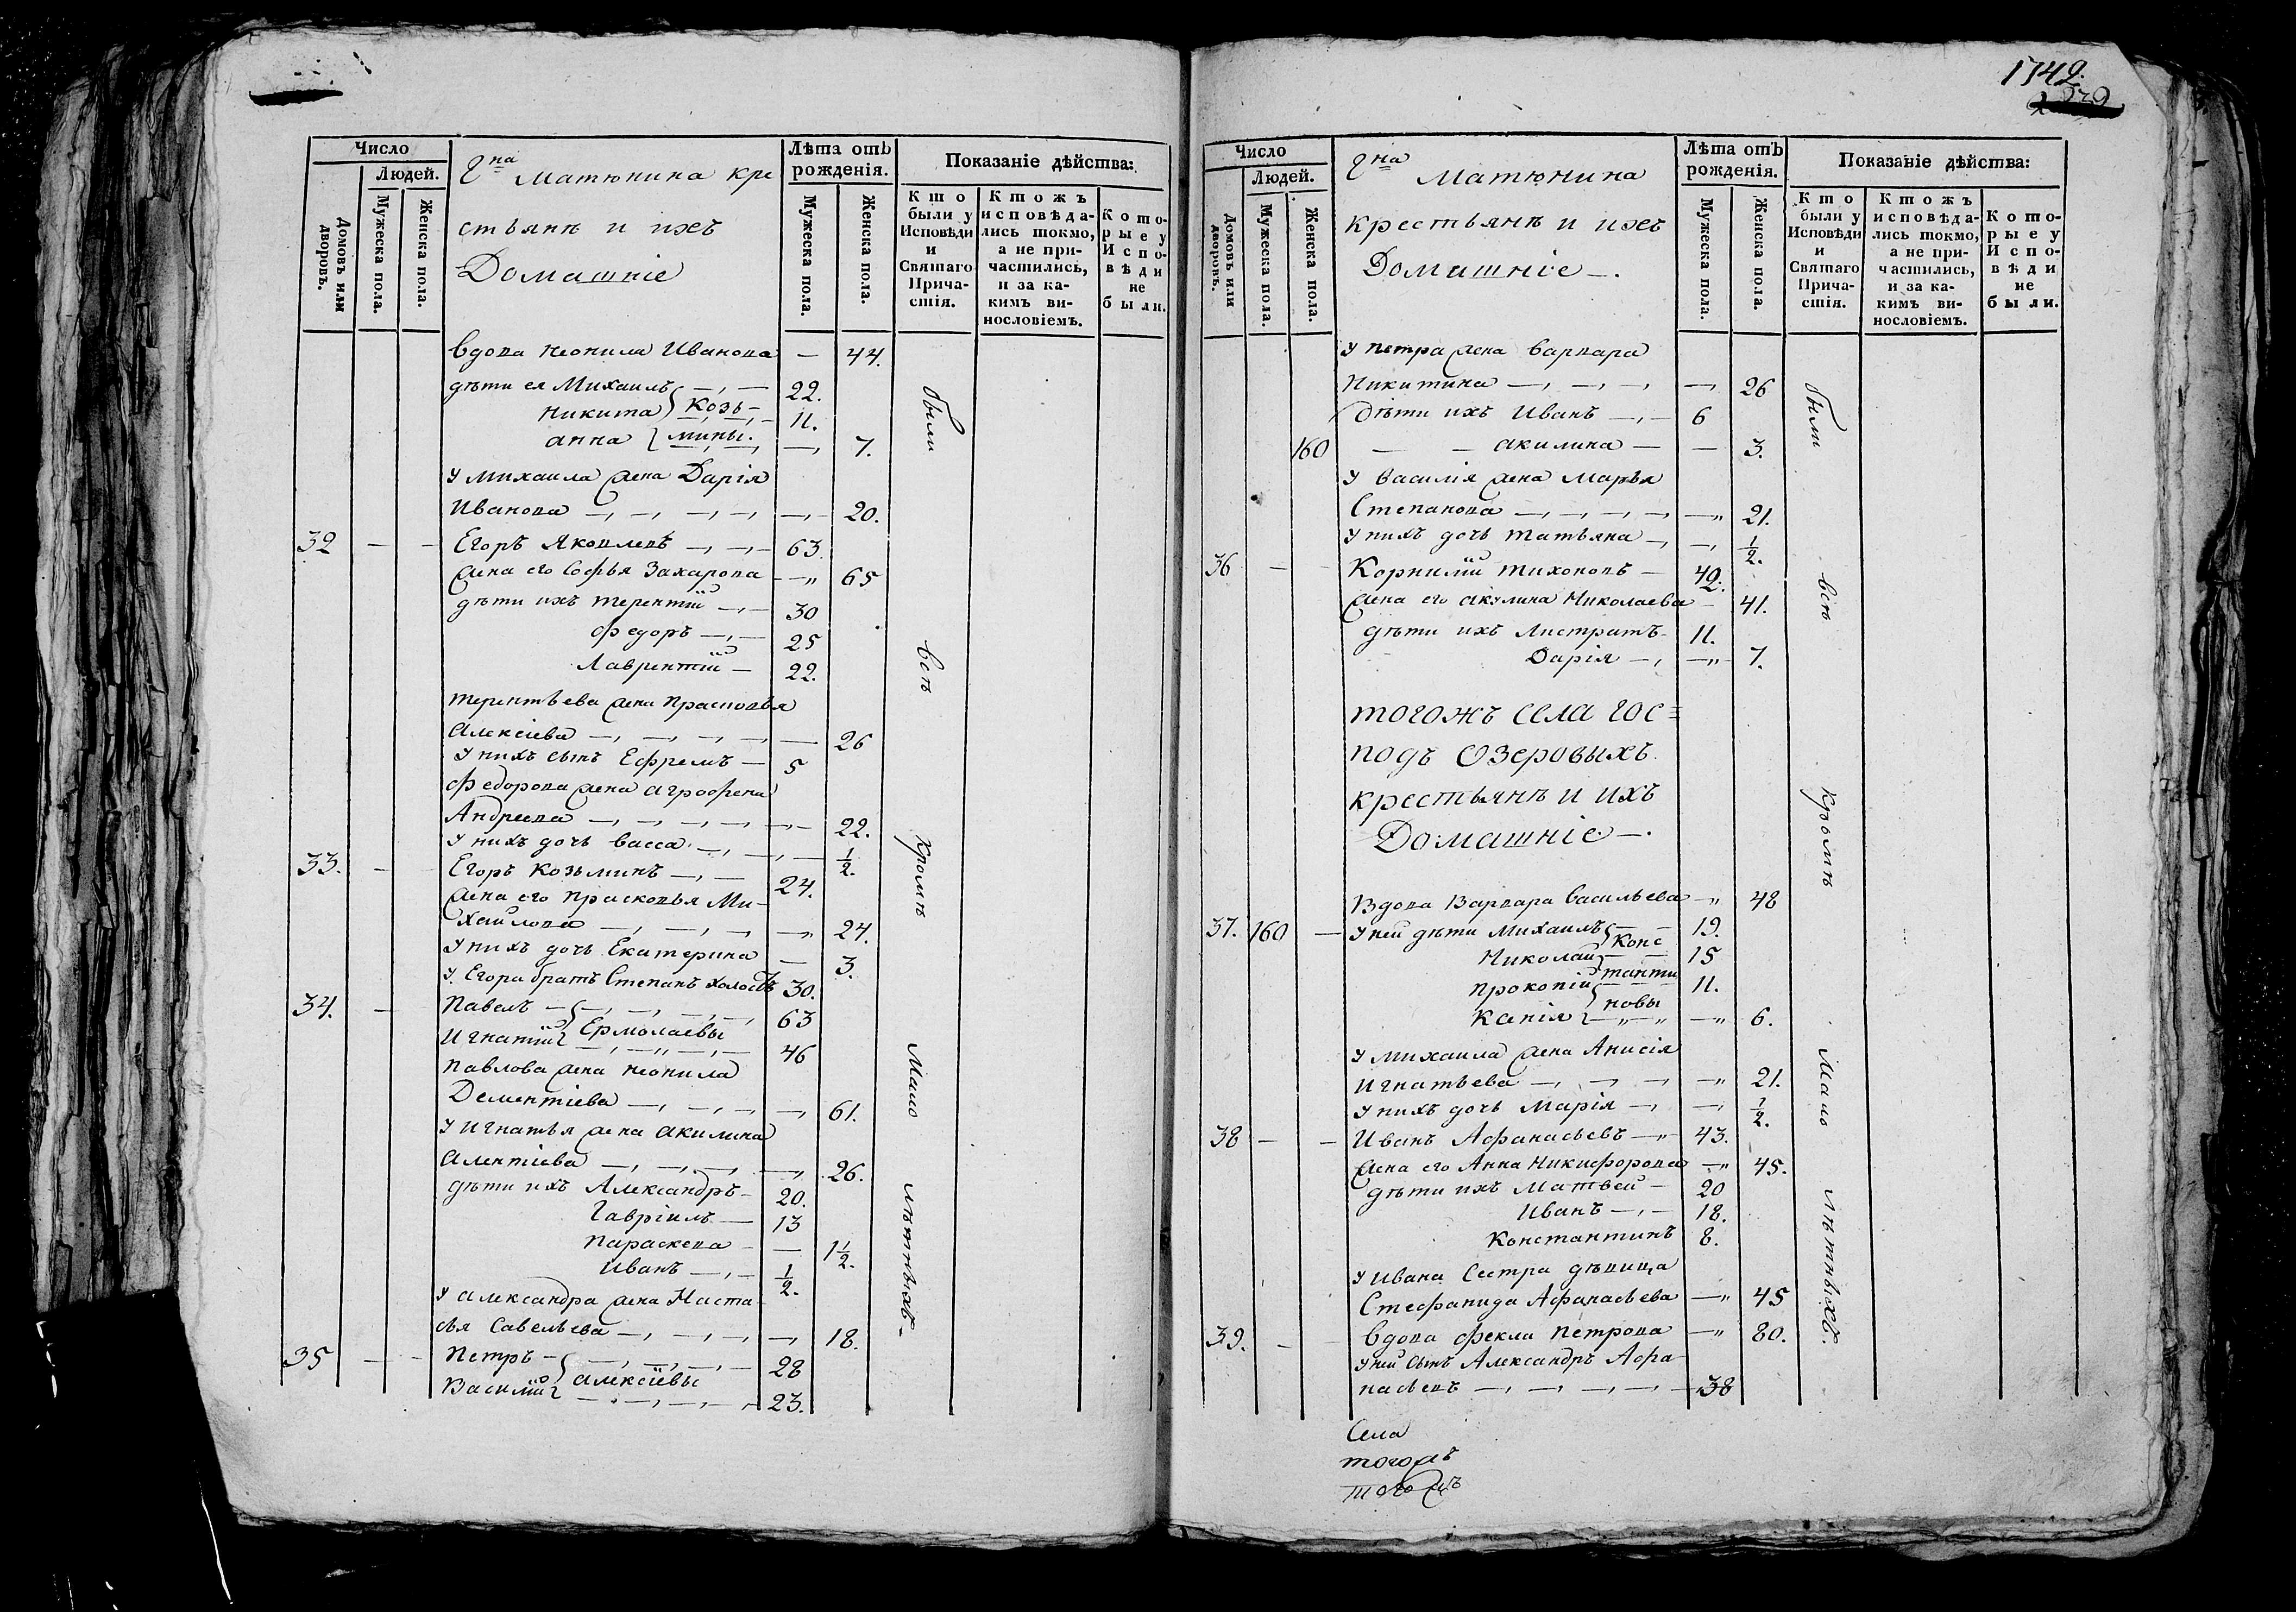 Число
Людей.
Домовъ или дворовъ.
Мужеска пола.
Женска пола.
Гна Матюнина кре
стьянъ и ихъ
Домашніе
Лѣта отъ рожденія.
Мужеска пола.
Женска пола.
Показаніе дѣйства:
Кто были у Исповѣди и Святаго Прича-стія.
Ктожъ исповѣда-лись токмо, а не при-частились, и за ка-кимъ ви-нословіемъ.
Кото-рые у Испо-вѣди не были.
вдова Неонила Иванова — 44.
дѣти ея Михаилъ 22.
Никита Козь- 11.
анна мины. — 7.
у михаила жена Дарія
Иванова — 20.
32 — — Егоръ Яковлевъ — 63.
жена его Софья Захарова — 65
дѣти ихъ терентій — 30
федоръ — 25
Лаврентій — 22.
терентьева жена Прасковья
Алексіева — 26
у нихъ сынъ Ефремъ — 5
федорова жена аграфена
Андреева — 22.
у нихъ дочь васса — 1/2.
33. — — Егоръ Козьминъ — 24.
жена его Прасковья Ми-
хаилова — 24.
у нихъ дочь Екатерина — 3.
у Егора братъ Степанъ холостъ 30.
34. — — Павелъ — 63
Игнатій Ермолаевы 46
Павлова жена неонила
Дементіева — 61.
у Игнатья жена акилина
Алентіева — 26.
дѣти ихъ Александръ — 20.
Гавріилъ — 13
Параскева — 1 1/2.
Иванъ — 1/2.
у александра жена Наста-
сья Савельева — 18.
35 — — Петръ — 28
Василій алексіевы 23.
были всѣ кромѣ мало лѣтнѣхъ.
1742.
Число
Людей.
Домовъ или дворовъ.
Мужеска пола.
Женска пола.
Гна Матюнина
крестьянъ и ихъ
Домашніе —.
Лѣта отъ рожденія.
Мужеска пола.
Женска пола.
Показаніе дѣйства:
Кто были у Исповѣди и Святаго Прича-стія.
Ктожъ исповѣда-лись токмо, а не при-частились, и за ка-кимъ ви-нословіемъ.
Кото-рые у Испо-вѣди не были.
у петра жена варвара
Никитина — 26
дѣти ихъ Иванъ — 6
160 — — акилина — 3.
у василія жена Марья
Степанова — 21.
у нихъ дочь татьяна — 1/2.
36 — Корнилій тихоновъ — 42.
жена его акулина Николаева — 41.
дѣти ихъ Листратъ — 11.
Дарія — 7.
тогожъ села гос=
подъ Озеровыхъ
крестьянъ и ихъ
Домашніе —.
Вдова Варвара Васильева — 48
37. 160 — у ней дѣти Михаилъ 19.
Николай Конс 15
Прокопій танти 11.
Ксенія новы — 6.
у михаила жена Анисія
Игнатьева — 21.
у нихъ дочь Марія — 1/2.
38 — — Иванъ Афанасьевъ — 43.
жена его Анна Никифорова — 45.
дѣти ихъ Матвей — 20
Иванъ — 18.
Константинъ 8.
у Ивана Сестра дѣвица
Стефанида Афанасьева — 45
39. — вдова фекла Петрова — 80.
у ней сынъ Александръ Афа-
насьевъ — 38
были всѣ кромѣ мало лѣтнѣхъ.
Села
тогожъ
тогожъ